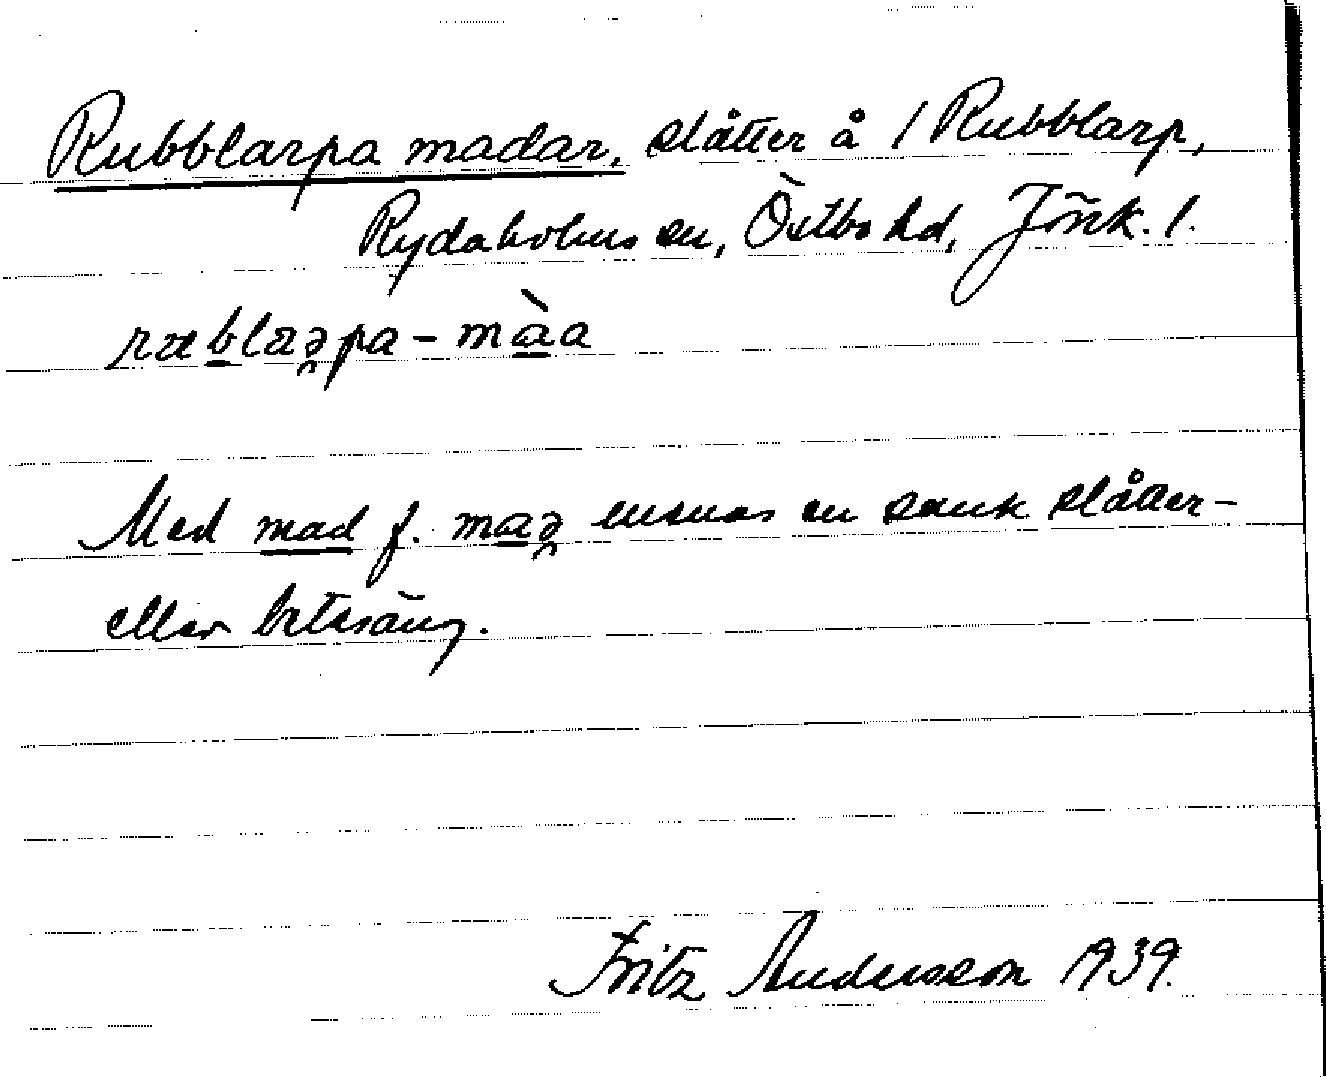 Rubblarpa madar, slåtter å / Rubblarp,
Rydaholms sn, Östbo hd, Jönk. l.
ræblaəpa - màa
Med mad f. maə menas en sank slåtter-
eller betesäng.
Fritz Andersson 1939.